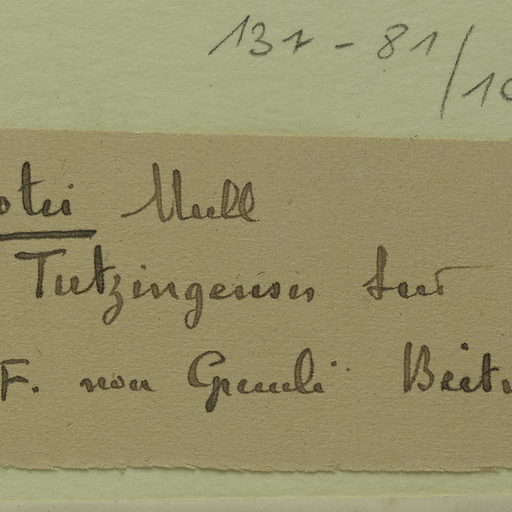 137-81/10
otei Mull
Tutzingensis sur
F. von Gremli Beitr